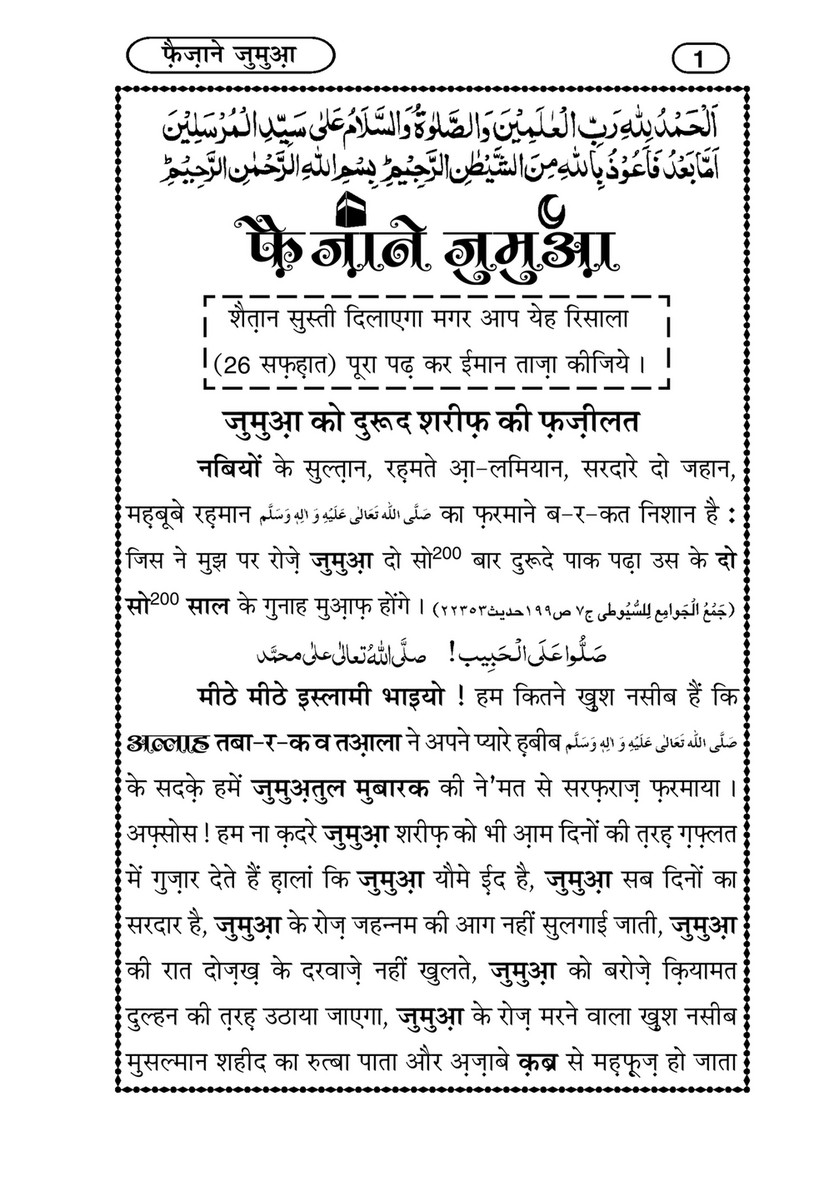 फ़ैज़ाने जुमुआ़
1
اَلْحَمْدُ لِلّٰهِ رَبِّ الْعٰلَمِيْنَ وَالصَّلٰوةُ وَالسَّلَامُ عَلٰى سَيِّدِ الْمُرْسَلِيْنَ
اَمَّا بَعْدُ فَاَعُوْذُ بِاللّٰهِ مِنَ الشَّيْطٰنِ الرَّجِيْمِ ؕ بِسْمِ اللّٰهِ الرَّحْمٰنِ الرَّحِيْمِ ؕ
फ़ैज़ाने जुमुआ़
शैत़ान सुस्ती दिलाएगा मगर आप येह रिसाला
(26 सफ़ह़ात) पूरा पढ़ कर ईमान ताज़ा कीजिये ।
जुमुआ़ को दुरूद शरीफ़ की फ़ज़ीलत
नबियों के सुल्त़ान, रह़मते आ़-लमियान, सरदारे दो जहान,
मह़बूबे रह़मान صَلَّى اللّٰه تَعَالٰى عَلَيْهِ وَ اٰلِهٖ وَسَلَّم का फ़रमाने ब-र-कत निशान है :
जिस ने मुझ पर रोज़े जुमुआ़ दो सो200 बार दुरूदे पाक पढ़ा उस के दो
सो200 साल के गुनाह मुआ़फ़ होंगे । (جَمْعُ الْجَوامِع لِلسُّيُوطى ج٧ ص١٩٩حديث٢٢٣٥٣)
صَلُّوا عَلَى الْحَبِيب! صلَّى اللّٰهُ تعالٰى على محمَّد
मीठे मीठे इस्लामी भाइयो ! हम कितने खुश नसीब हैं कि
अल्लाह तबा-र-क व तआ़ला ने अपने प्यारे ह़बीब صَلَّى اللّٰه تَعَالٰى عَلَيْهِ وَ اٰلِهٖ وَسَلَّم
के सदक़े हमें जुमुअ़तुल मुबारक की ने'मत से सरफ़राज़ फ़रमाया ।
अफ़्सोस ! हम ना क़दरे जुमुआ़ शरीफ़ को भी आ़म दिनों की त़रह़ ग़फ़्लत
में गुज़ार देते हैं ह़ालां कि जुमुआ़ यौमे ई़द है, जुमुआ़ सब दिनों का
सरदार है, जुमुआ़ के रोज़ जहन्नम की आग नहीं सुलगाई जाती, जुमुआ़
की रात दोज़ख़ के दरवाज़े नहीं खुलते, जुमुआ़ को बरोज़े क़ियामत
दुल्हन की त़रह़ उठाया जाएगा, जुमुआ़ के रोज़ मरने वाला खुश नसीब
मुसल्मान शहीद का रुत्बा पाता और अ़ज़ाबे क़ब्र से मह़फ़ूज़ हो जाता